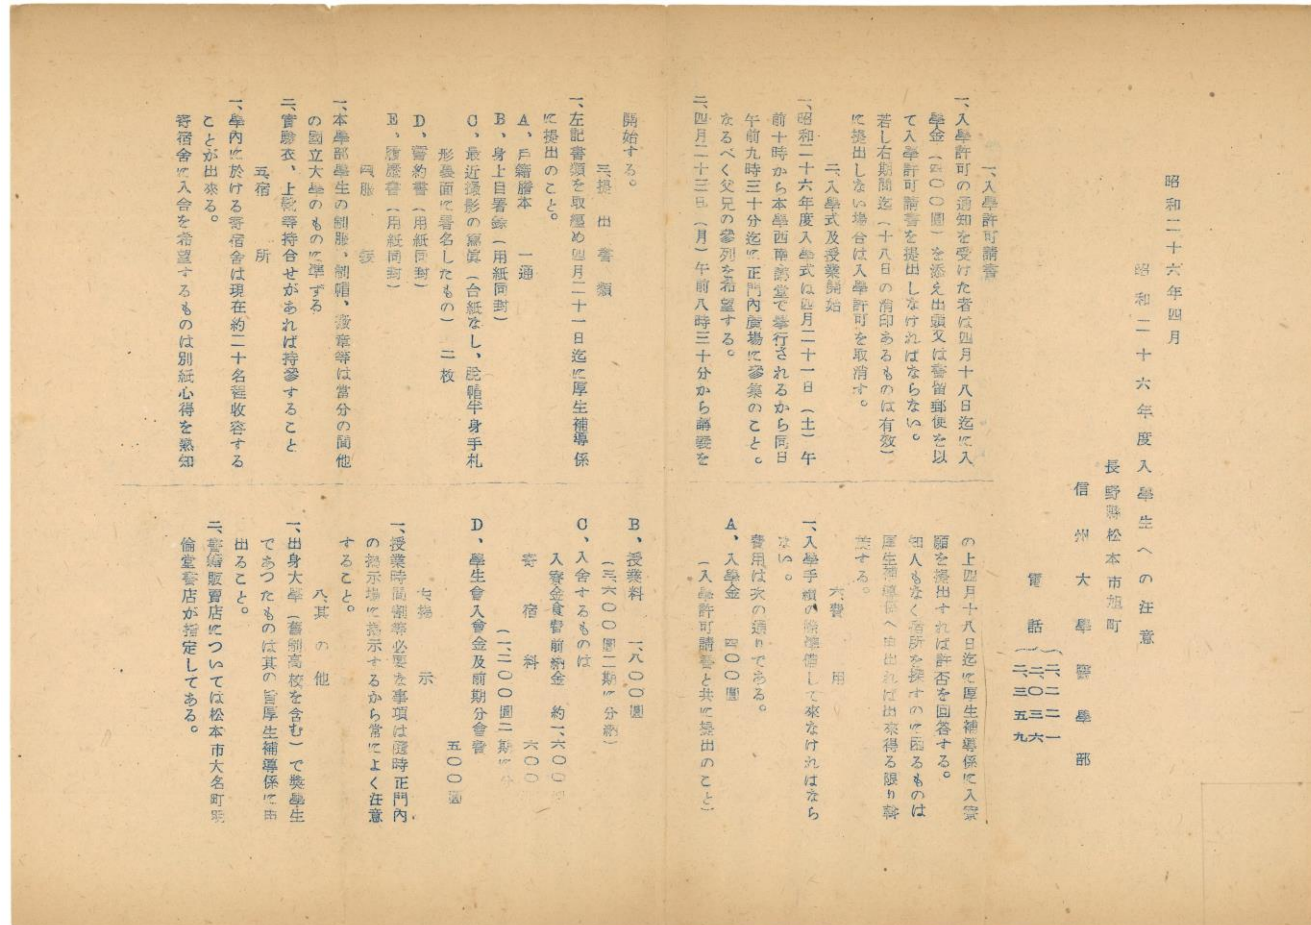 昭和二十六年四月
昭和二十六年度入學生への注意
長野縣松本市旭町
信州大學醫學部
電話(二、二二一
二、〇三六
二、三五九
一、入學許可請書
一、入學許可の通知を受けた者は四月十八日迄に入
學金(四〇〇圓)を添え出頭又は書留郵便を以
て入學許可請書を提出しなければならない。
若し右期間迄(十八日の消印あるものは有效)
に提出しない場合は入學許可を取消す。
二、入學式及授業開始
一、昭和二十六年度入學式は四月二十一日(土)午
前十時から本學西南講堂で擧行されるから同日
午前九時三十分迄に正門內廣場に參集のこと。
なるべく父兄の參列を希望する。
二、四月二十三日(月)午前八時三十分から講義を
開始する。
三、提出書類
一、左記書類を取纒め四月二十一日迄に厚生補導係
に提出のこと。
A、戶籍謄本 一通
B、身上自署錄(用紙同封)
C、最近撮影の寫眞(台紙なし、脫帽半身手札
形裏面に署名したもの)二枚
D、誓約書(用紙同封)
E、履歷書(用紙同封)
四、服裝
一、本學部學生の制服、制帽、徽章等は當分の間他
の國立大學のものに準ずる
二、實驗衣、上靴等持合せがあれば持參すること
五、宿所
一、學內に於ける寄宿舍は現在約二十名程收容する
ことが出來る。
寄宿舍に入舍を希望するものは別紙心得を熟知
の上四月十八日迄に厚生補導係に入寮
願を提出すれば許否を回答する。
知人もなく宿所を探すのに困るものは
厚生補導係へ申出れば出來得る限り斡
旋する。
六、費用
一、入學手續の際準備して來なければなら
ない。
費用は次の通りである。
A、入學金 四〇〇圓
(入學許可請書と共に提出のこと)
B、授業料 一、八〇〇圓
(三、六〇〇圓二期に分納)
C、入舍するものは
入寮金食費前納金 約一、六〇〇
寄宿料 六〇〇
(一、二〇〇圓二期に
D、學生會入會金及前期分會費
五〇〇圓
七、揭示
一、授業時間割等必要な事項は隨時正門內
の揭示場に揭示するから常によく注意
すること。
八、其の他
一、出身大學(舊制高校を含む)で獎學生
であつたものは其の旨厚生補導係に申
出ること。
二、書籍販賣店については松本市大名町明
倫堂書店が指定してある。